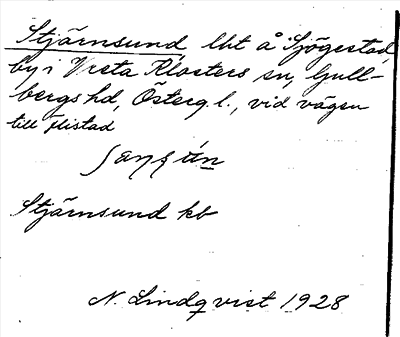 Stjärnsund, lht å Sjögestad
by i Vreta Klosters sn, Gull-
bergs hd, Österg. l., vid vägen
till Flistad
Stjärnsund kb
N. Lindqvist 1928